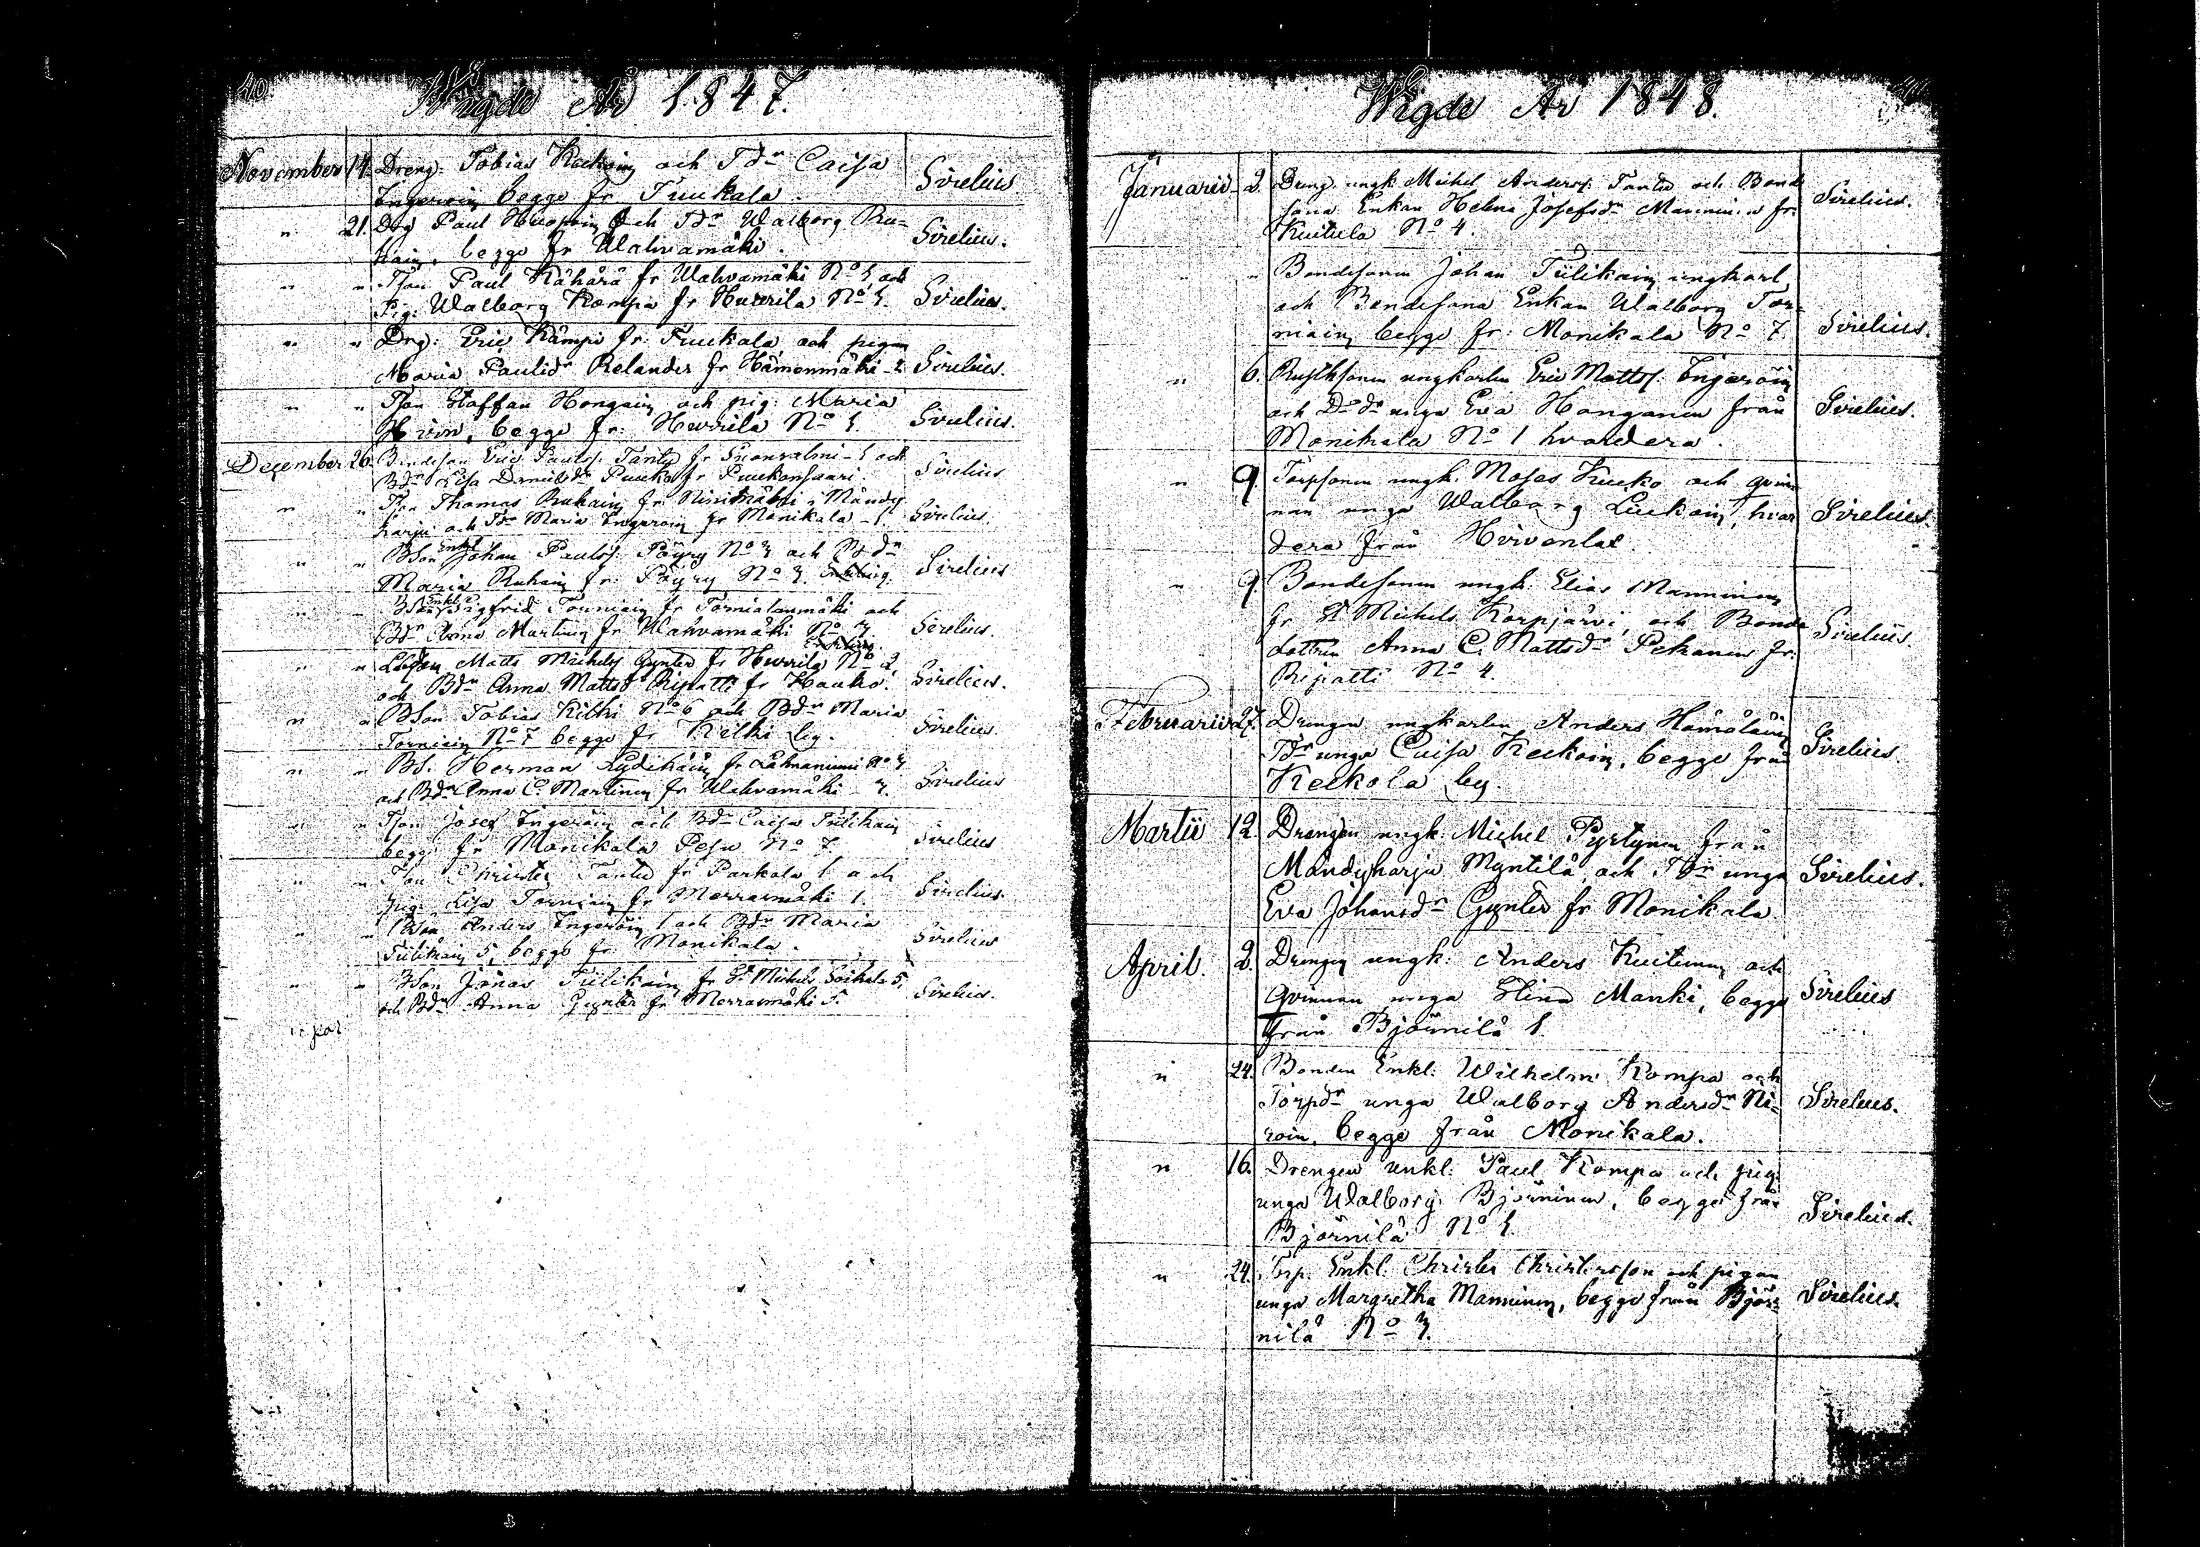 40
Wigde År 1847.
November 14. Dreng: Tobias Keckoin och Tdr Caisa Sirelius
Ingeroin begge fr Tuukala.
" 21. Drg Paul Huopoin och Tdr Walborg Ru- Sirelius.
hain, begge fr Wahvamäki.
" " Tson Paul Kähärä fr Wahvamäki No 3 och
Pig: Walborg Kompa fr Hurrila No 3. Sirelius.
" " Drg: Eric Kämpi fr: Tuukala och pigan
Maria Paulidr Relander fr Hämenmäki-2 Sirelius.
" " Tson Staffan Hongain och pig: Maria
begge fr: Hurrila No 3. Sirelius.
December 26. Bondeson Eric Paulss: Tanttu fr Suonsalmi-3 och
Bdr Lisa Danielsdr Puuko fr Puukonsaari. Sirelius
" " Tson Thomas Ruhain fr Niinimäki i Mändy
harju och Tdr Maria Ingeroin fr Monikala-1. Sirelius.
" " Bson Enkl Johan Paulss: Pöyry No 3 och Bdr
Maria Ruhain fr: Pöyry No 3. Sirelius
" " Bson Enkl: Sigfrid Torniain fr Tornialanmäki och
Bdr Anna Martinen fr Wahvamäki No 3 Sirelius.
" " Matts Michelss Gynter fr Hurrila No 2
och Bdr Anna Mattsdr Ripatti fr Hauko. Sirelius.
" " Bson Tobias Kilki No 6 och Bdr Maria
Torniain No 7 begge fr Kilki by. Sirelius.
" " Bs. Herman Lydikäin fr Lahnaniemi No 3
och Bdr Anna C. Martinen fr Wahvamäki 3. Sirelius
" " Tson Josef Ingeroin och Bdr Caisa Tulikain
begge fr Monikala Pesu No 7. Sirelius
" " Tson Christer Tanttu fr Parkola 1 och
pig: Lisa Torniain fr Marraamäki 1. Sirelius.
" " Bson Anders Ingeroin 1 och Bdr Maria
Tulikain 5, begge fr Monikala. Sirelius
" " Bson Jonas Tulikain fr St Michels Soikala 5,
och Bdr Anna Gynter fr Marraamäki 5. Sirelius.
par
41
Wigde År 1848.
Januarii 2. Dreng. ungk. Michel Anderss: Tanttu och Bonde
sona Enkan Helena Josefsdr Manninen fr: Sirelius.
Kuitula No 4.
" " Bondesonen Johan Tulikain ungkarl
och Bondesona Enkan Walborg Tor-
niain, begge fr: Monikala No 7. Sirelius.
" 6. Rustksonen ungkarlen Eric Mattss: Ingeroin
och Do dr unga Eva Honganen från Sirelius.
Monikala No 1 hvardera.
" 9. Torpsonen ungk. Moses Kuuko och qvin
nan unga Walborg Luukain, hvar Sirelius.
dera från Hirvenlax.
" 9. Bondesonen ungk. Elias Manninen
fr St Michels Korpjärvi, och Bonde
dottren Anna C. Mattsdr Pekanen fr: Sirelius.
Ripatti No 4.
Februarii 27. Drengen ungkarlen Anders Hämäläin
Tdr unga Caisa Keckoin, begge från Sirelius.
Keckola by.
Martii 12. Drengen ungk. Michel Pyrtynen från
Mändyharju Myntilä, och Tdr unga Sirelius.
Eva Johansdr Gynter fr Monikala
April. 2. Drengen ungk. Anders Kuitunen och
qvinnan unga Elina Manki, begge Sirelius
från Björnilä 1.
" 24. Bonden Enkl. Wilhelm Kompa och
Torpdr unga Walborg Andersdr Ni- Sirelius.
roin, begge från Monikala.
" 16. Drengen enkl. Paul Kompa och pig.
unga Walborg Björninen, begge från
Björnilä No 3. Sirelius.
" 24. Torp. Enkl. Christer Christersson och pigan
unga Margretha Manninen, begge från Björ- Sirelius.
nilä No 3.